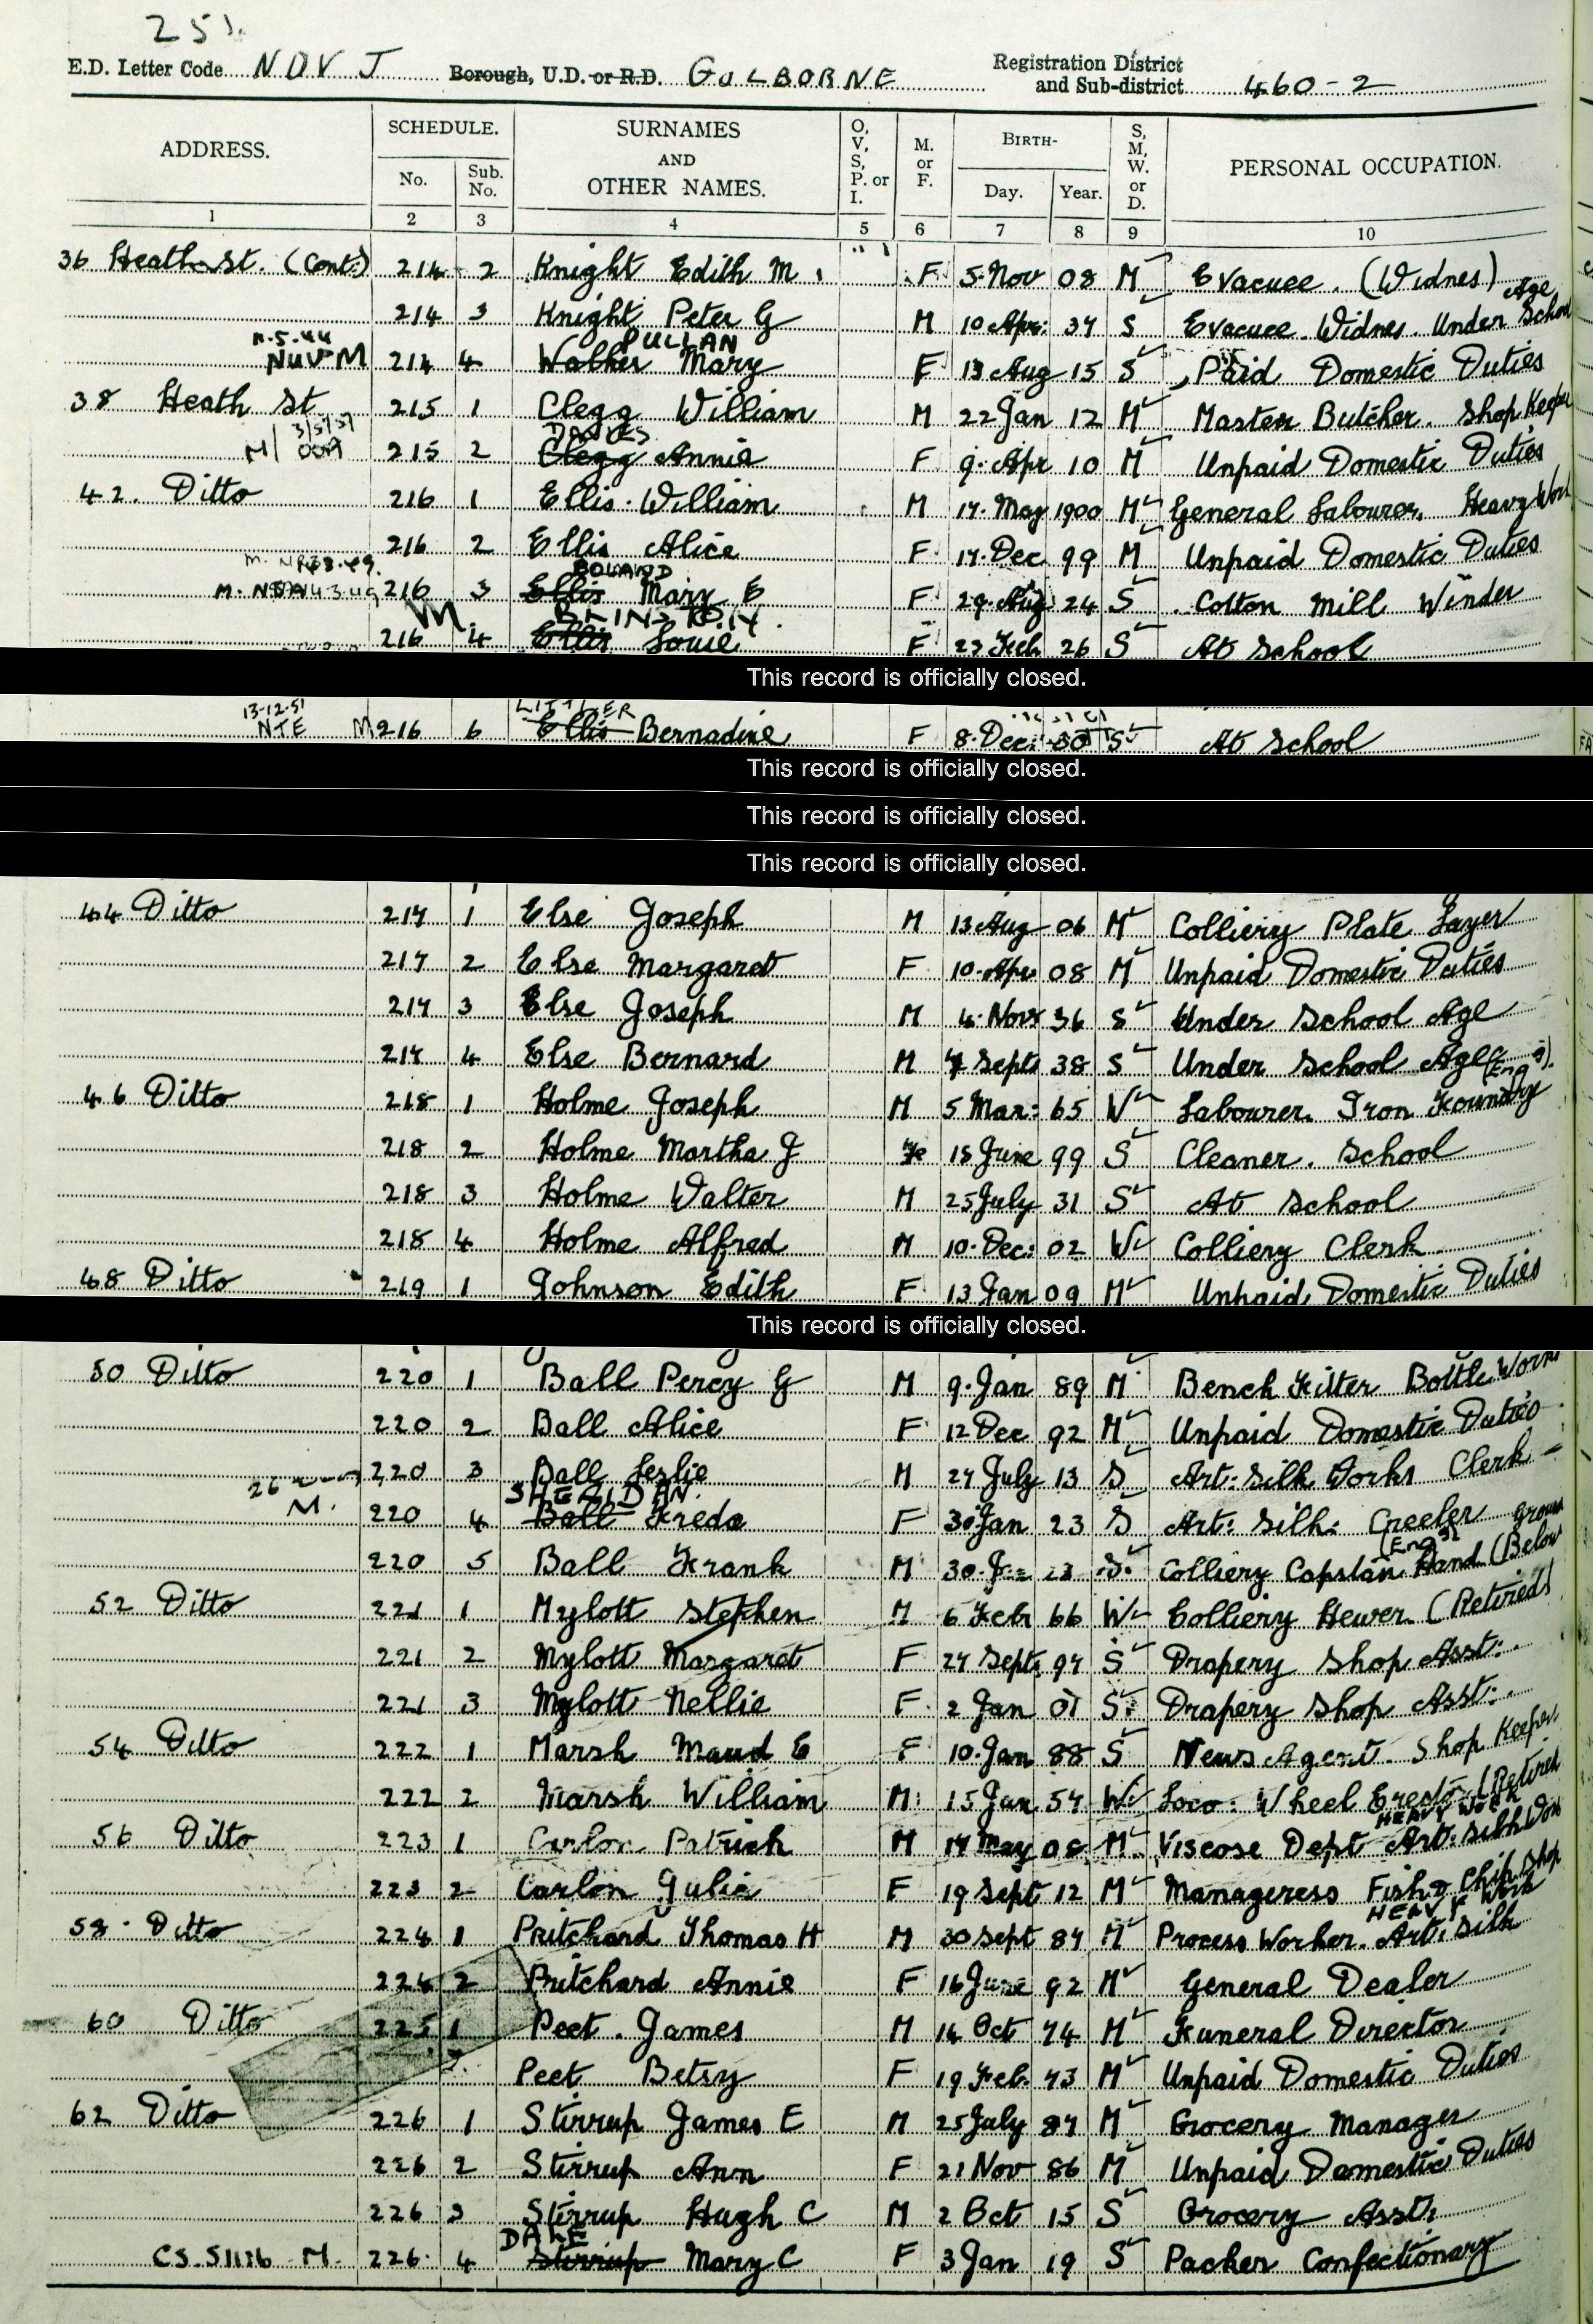 251.
E.D. Letter Code NDV J Borough, U.D. or R.D. GOLBORNE Registration District and Sub-district 460-2
ADDRESS. SCHEDULE. No. Sub. No. SURNAMES AND OTHER NAMES. O, V, S, P. or I. M. or F. BIRTH- Day. Year. S, M, W. or D. PERSONAL OCCUPATION.
1 2 3 4 5 6 7 8 9 10
36 Heath St. (Cont:) 214 2 Knight Edith M. F 5 Nov 08 M Evacuee. (Widnes)
214 3 Knight Peter G M 10 Apr: 37 S Evacuee. Widnes. Under School Age
11.5.44 PULLAN
NUV M 214 4 Walker Mary F 13 Aug 15 S Paid Domestic Duties
38 Heath St 215 1 Clegg William M 22 Jan 12 M Master Butcher. Shop Keeper
DAVIES
M 215 2 Clegg Annie F 9. Apr 10 M Unpaid Domestic Duties
42. Ditto 216 1 Ellis William M 17. May 1900 M General Labourer. Heavy Work
216 2 Ellis Alice F 17. Dec 99 M Unpaid Domestic Duties
BOLAND
216 3 Ellis Mary E F 29. Aug 24 S Cotton Mill Winder
M.
216 4 Ellis Louie F 27 Feb 26 S At School
This record is officially closed.
13-12-51 LITTLER
NTE M 216 6 Ellis Bernadine F 8. Dec: 30 S At School
This record is officially closed.
This record is officially closed.
This record is officially closed.
44 Ditto 217 1 Else Joseph M 13 Aug 06 M Colliery Plate Layer
217 2 Else Margaret F 10. Apr 08 M Unpaid Domestic Duties
217 3 Else Joseph M 4. Nov 36 S Under School Age
217 4 Else Bernard M 7 Sept 38 S Under School Age
46 Ditto 218 1 Holme Joseph M 5 Mar: 65 W Labourer. Iron Foundry
218 2 Holme Martha J Fe 18 June 99 S Cleaner. School
218 3 Holme Walter M 25 July 31 S At School
218 4 Holme Alfred M 10. Dec: 02 W Colliery Clerk
48 Ditto 219 1 Johnson Edith F 13 Jan 09 M Unpaid Domestic Duties
This record is officially closed.
50 Ditto 220 1 Ball Percy G M 9. Jan 89 M Bench Fitter Bottle Works
220 2 Ball Alice F 12 Dec 92 M Unpaid Domestic Duties
220 3 Ball Leslie M 27 July 13 S Art: Silk Works Clerk
SHERIDAN
M. 220 4 Ball Freda F 30 Jan 23 S Art: Silk: Creeler
220 5 Ball Frank M 30. S Colliery Capstan Hand (Below Ground
52 Ditto 221 1 Mylott Stephen M 6 Feb 66 W Colliery Hewer (Retired)
221 2 Mylott Margaret F 27 Sept 97 S Drapery Shop Asst:
221 3 Mylott Nellie F 2 Jan 01 S Drapery Shop Asst:
54 Ditto 222 1 Marsh Maud E F 10. Jan 88 S News Agent. Shop Keeper
222 2 Marsh William M 15 Jan 57 W Loco: Wheel Erector (Retired
HEAVY WORK
56 Ditto 223 1 Carlon Patrick M 17 May 08 M Viscose Dept Art: Silk Works
223 2 Carlon Julia F 19 Sept 12 M Manageress Fish & Chip Shop
HEAVY WORK
58 Ditto 224 1 Pritchard Thomas H M 30 Sept 87 M Process Worker. Art: Silk
224 2 Pritchard Annie F 16 June 92 M General Dealer
60 Ditto 225 1 Peet. James M 14 Oct 74 M Funeral Director
2 Peet Betsy F 19 Feb. 73 M Unpaid Domestic Duties
62 Ditto 226 1 Stirrup James E M 25 July 87 M Grocery Manager
226 2 Stirrup Ann F 21 Nov 86 M Unpaid Domestic Duties
226 3 Stirrup Hugh C M 2 Oct 15 S Grocery Asst:
DALE
CS. 51126 M. 226 4 Stirrup Mary C F 3 Jan 19 S Packer Confectionary